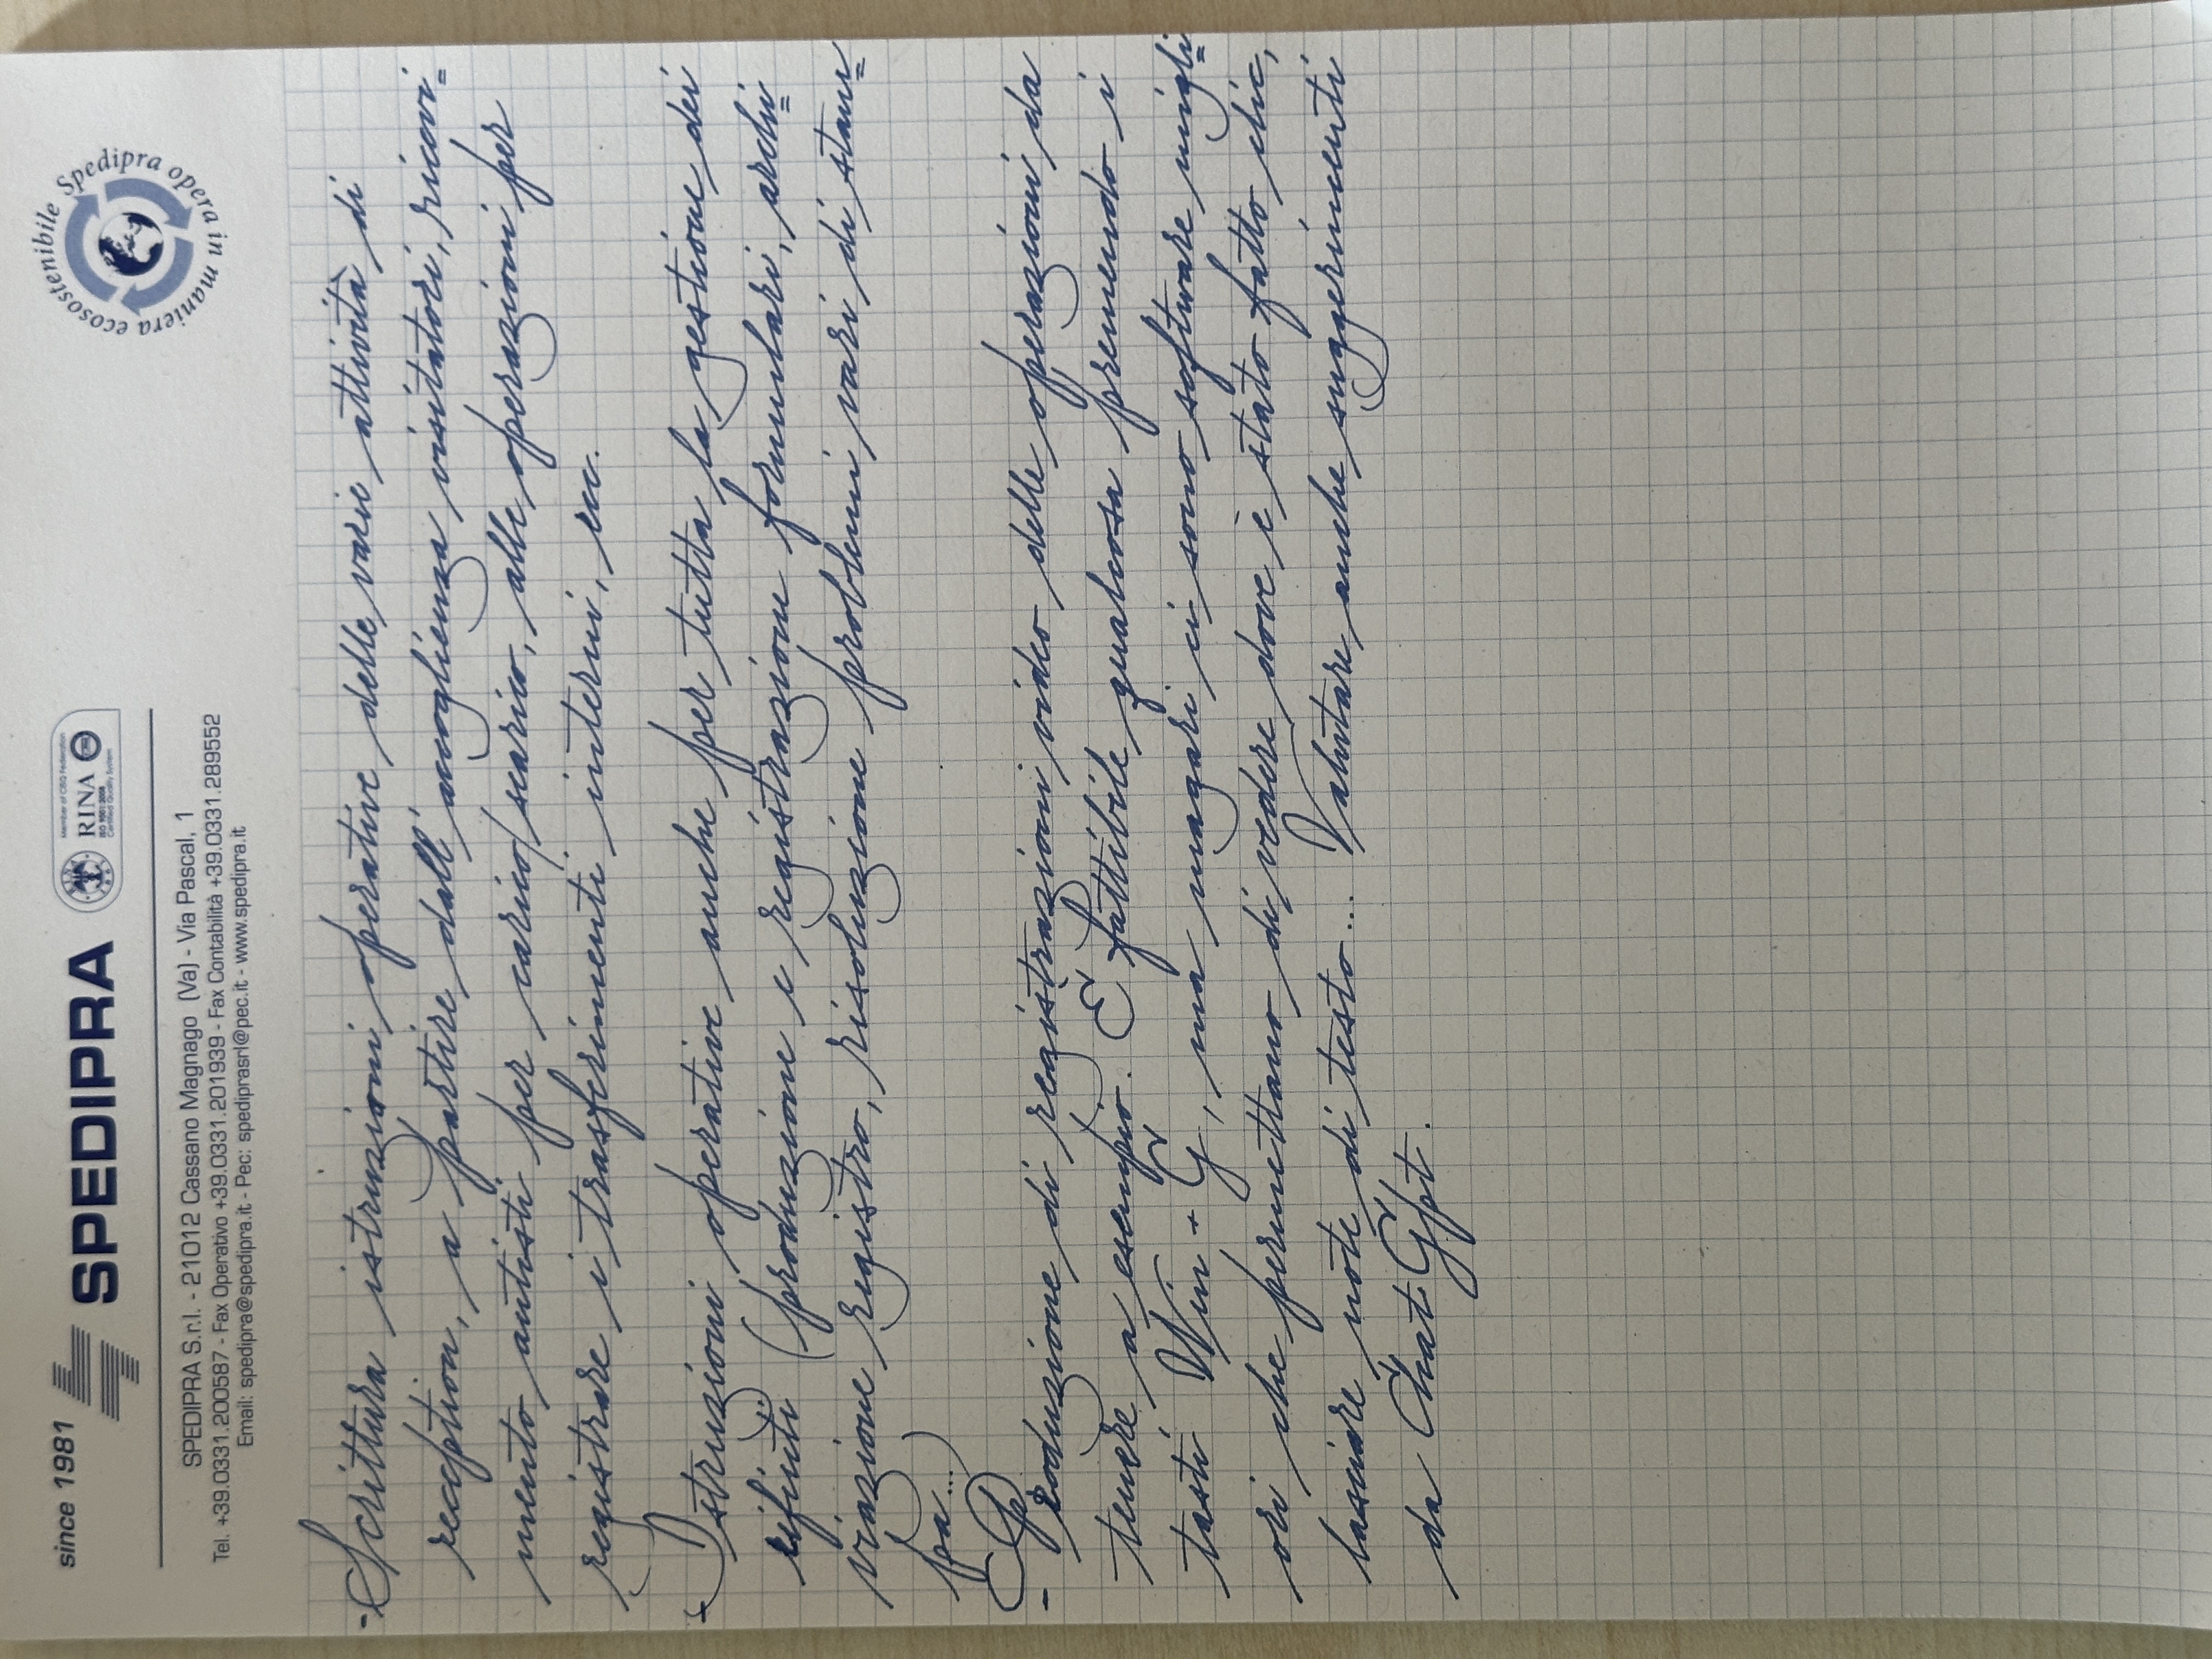 since 1981
SPEDIPRA
Member of CISQ Federation
RINA
ISO 9001:2008
Certified Quality System
Spedipra opera in maniera ecosostenibile
SPEDIPRA S.r.l. - 21012 Cassano Magnago (Va) - Via Pascal, 1
Tel. +39.0331.200587 - Fax Operativo +39.0331.201939 - Fax Contabilità +39.0331.289552
Email: spedipra@spedipra.it - Pec: spediprasrl@pec.it - www.spedipra.it
- Scrittura istruzioni operative delle varie attività di
reception, a partire dall'accoglienza visitatori, ricevi=
mento autisti per carico/scarico, alle operazioni per
registrare i trasferimenti interni, ecc.
Istruzioni operative anche per tutta la gestione dei
rifiuti (produzione e registrazione formulari, archi=
viazione registro, risoluzione problemi vari di stam=
pa...)
- Produzione di registrazioni video delle operazioni da
tenere a esempio. È fattibile qualcosa premendo i
tasti Win + G, ma magari ci sono software migli=
ori che permettano di vedere dove è stato fatto clic,
lasciare note di testo... Valutare anche suggerimenti
da Chat Gpt.